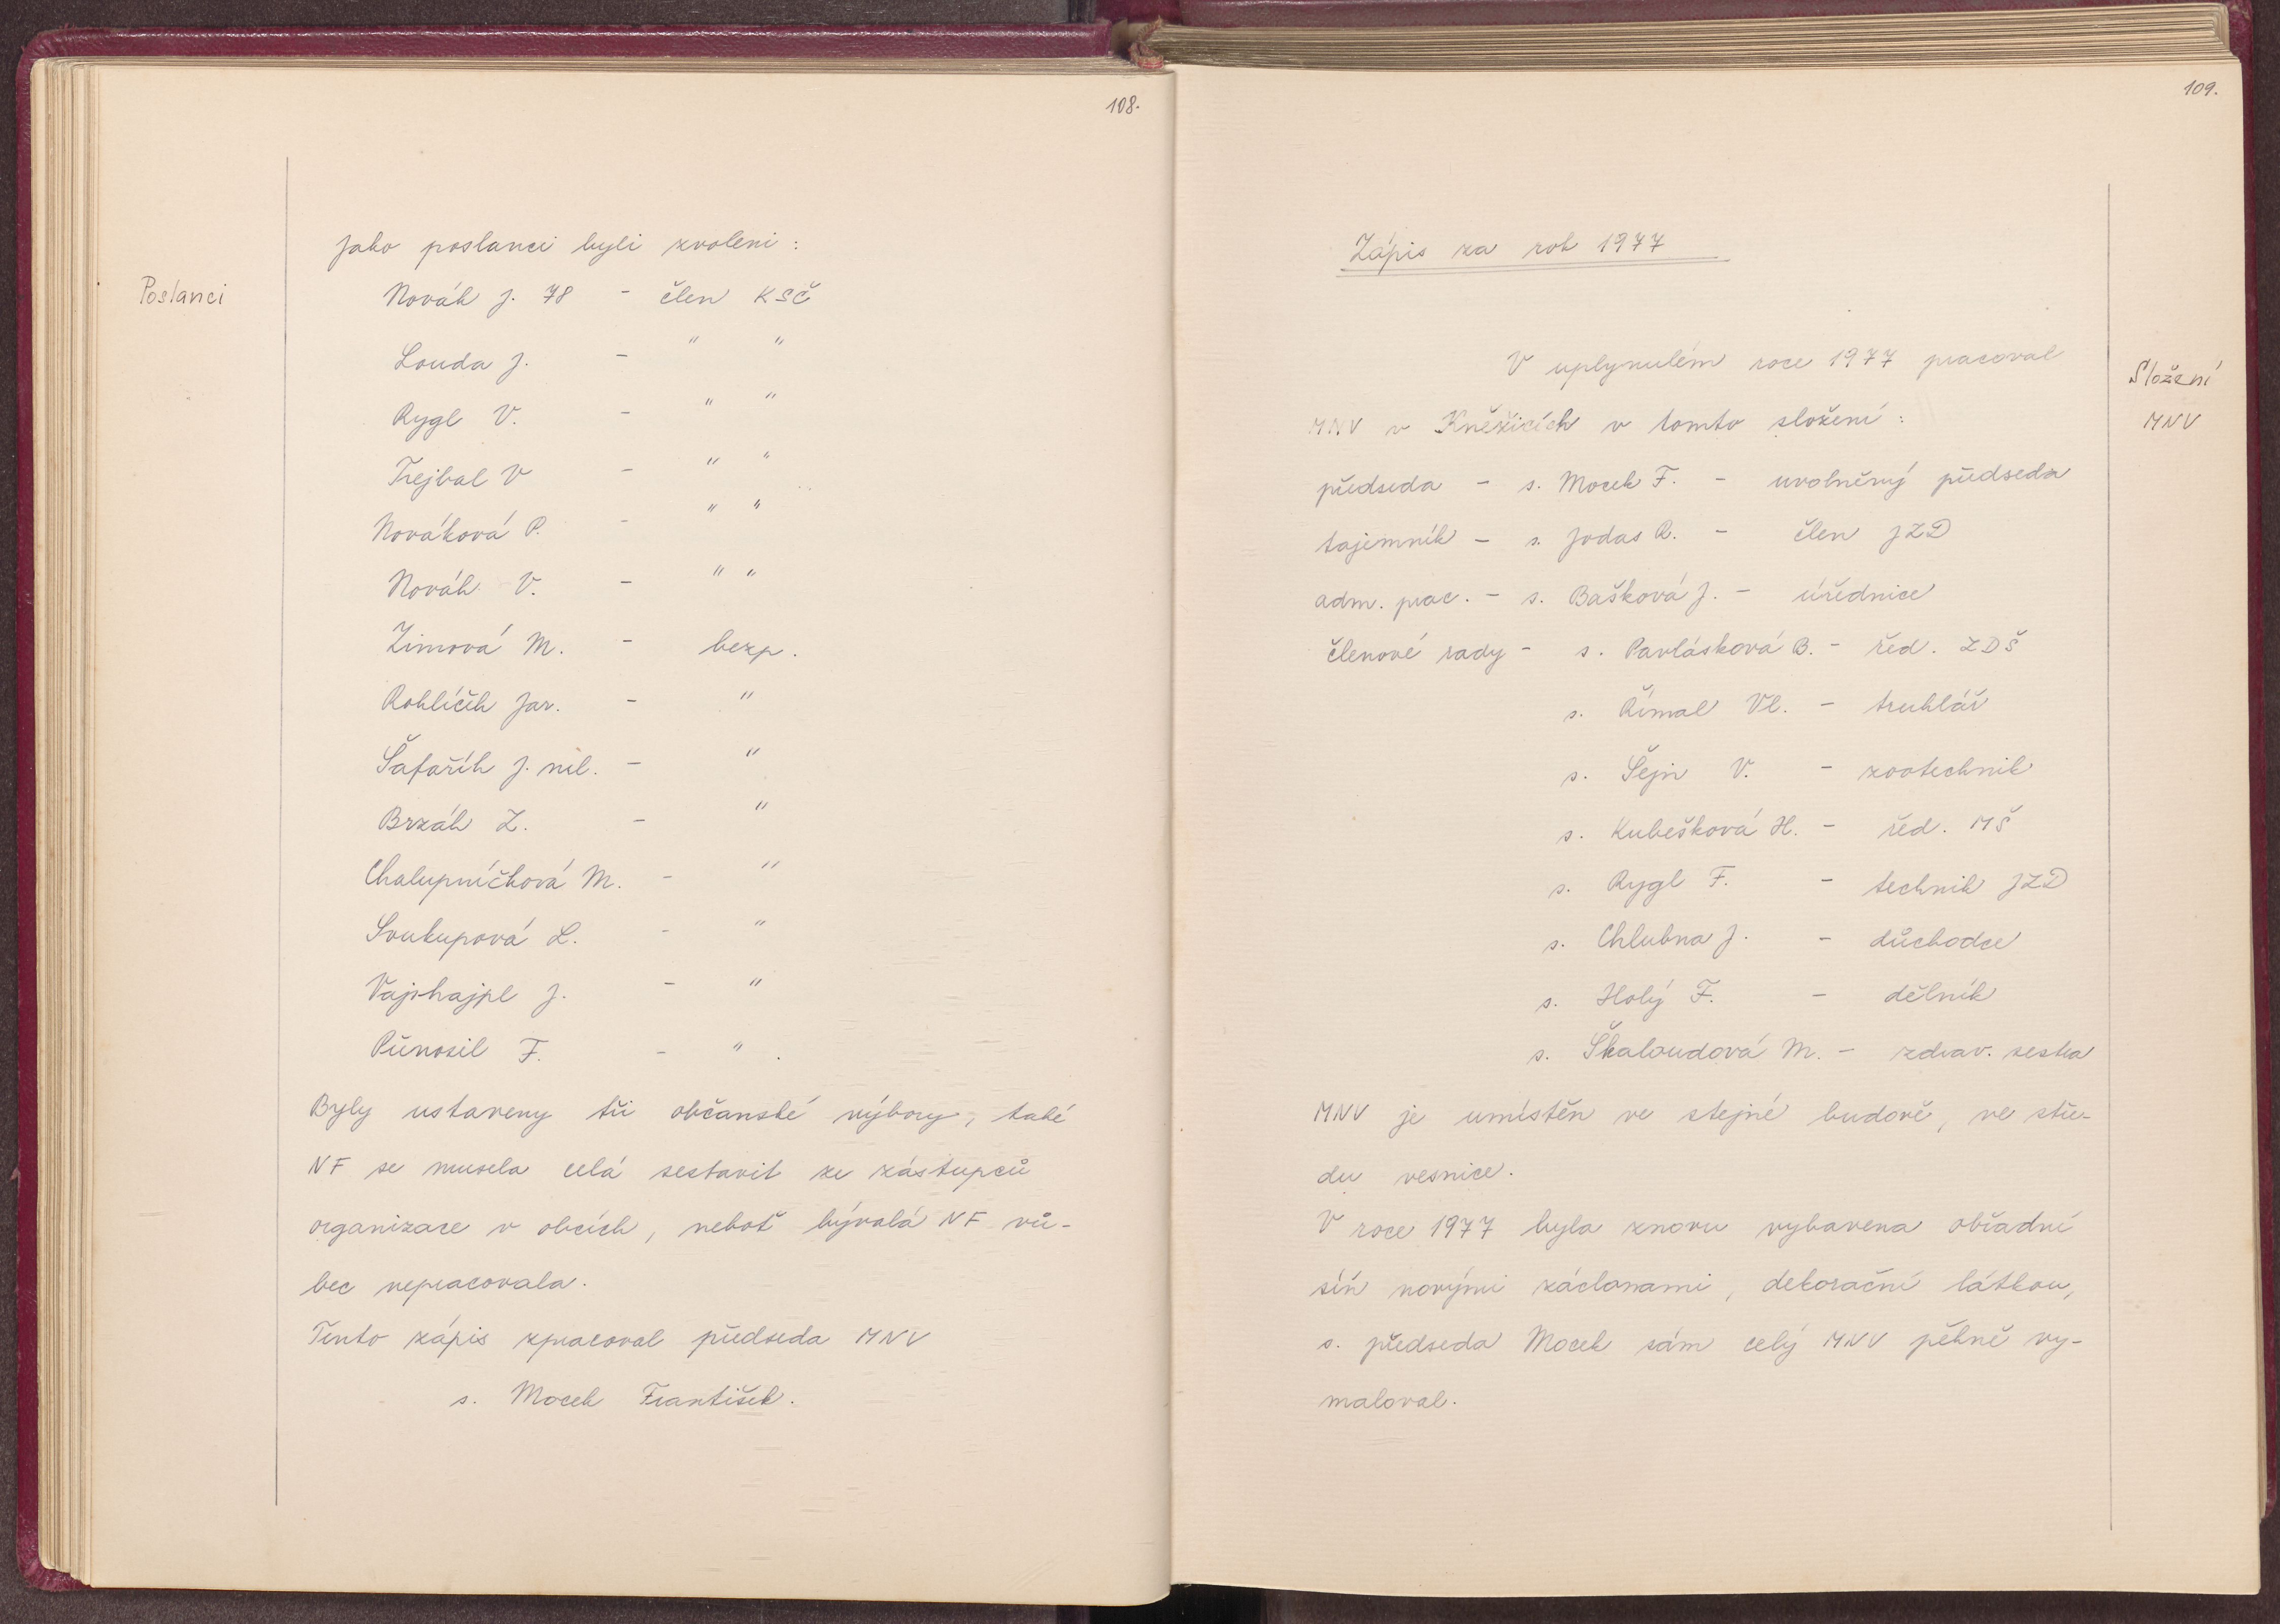 108.
Poslanci
Jako poslanci byli zvoleni :
Novák J. 78 - člen KSČ
Louda J. - " "
Rygl V. - " "
Trejbal V - " "
Nováková P. - " "
Novák V. - " "
Zimová M. - bezp.
Rohlíčik Jar. - "
Šafařík J. ml. - "
Brzák Z. - "
Chalupníčková M. - "
Soukupová L. - "
Vajshajpl J. - "
Přinosil F. - " .
Byly ustaveny tři občanské výbory, také
NF se musela celá sestavit ze zástupců
organizace v obcích, neboť bývalá NF vů-
bec nepracovala.
Tento zápis zpracoval předseda MNV
s. Mocek František.
109.
Zápis za rok 1977
Složení
MNV
V uplynulém roce 1977 pracoval
MNV v Kněžicích v tomto složení :
předseda - s. Mocek F. - uvolněný předseda
tajemník - s. Jodas R. - člen JZD
adm. prac. - s. Bašková J. - úřednice
členové rady - s. Pavlásková B. - řed. ZDŠ
s. Římal Vl. - truhlář
s. Šejn V. - zootechnik
s. Kubešková H. - řed. MŠ
s. Rygl F. - technik JZD
s. Chlubna J. - důchodce
s. Holý F. - dělník
s. Škaloudová M. - zdrav. sestra
MNV je umístěn ve stejné budově, ve stře-
du vesnice.
V roce 1977 byla znovu vybavena obřadní
síň novými záclonami, dekorační látkou,
s. předseda Mocek sám celý MNV pěkně vy-
maloval.